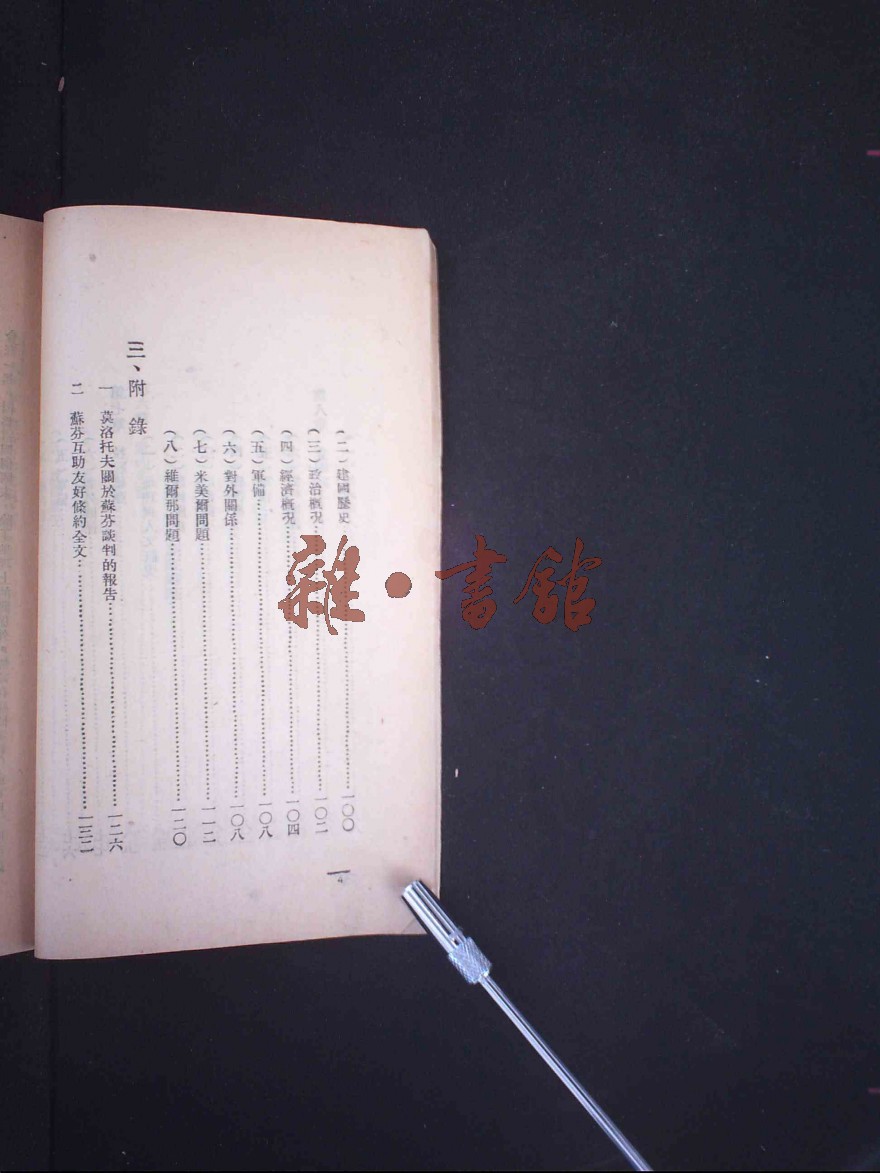 (二)建國歷史…………一〇〇
(三)政治概況…………一〇二
(四)經濟概況…………一〇四
(五)軍備…………一〇八
(六)對外關係…………一〇八
(七)米美爾問題…………一一二
(八)維爾那問題…………一二〇
三、附錄
一 莫洛托夫關於蘇芬談判的報告…………一二六
二 蘇芬互助友好條約全文…………一三二
4
雜·書館